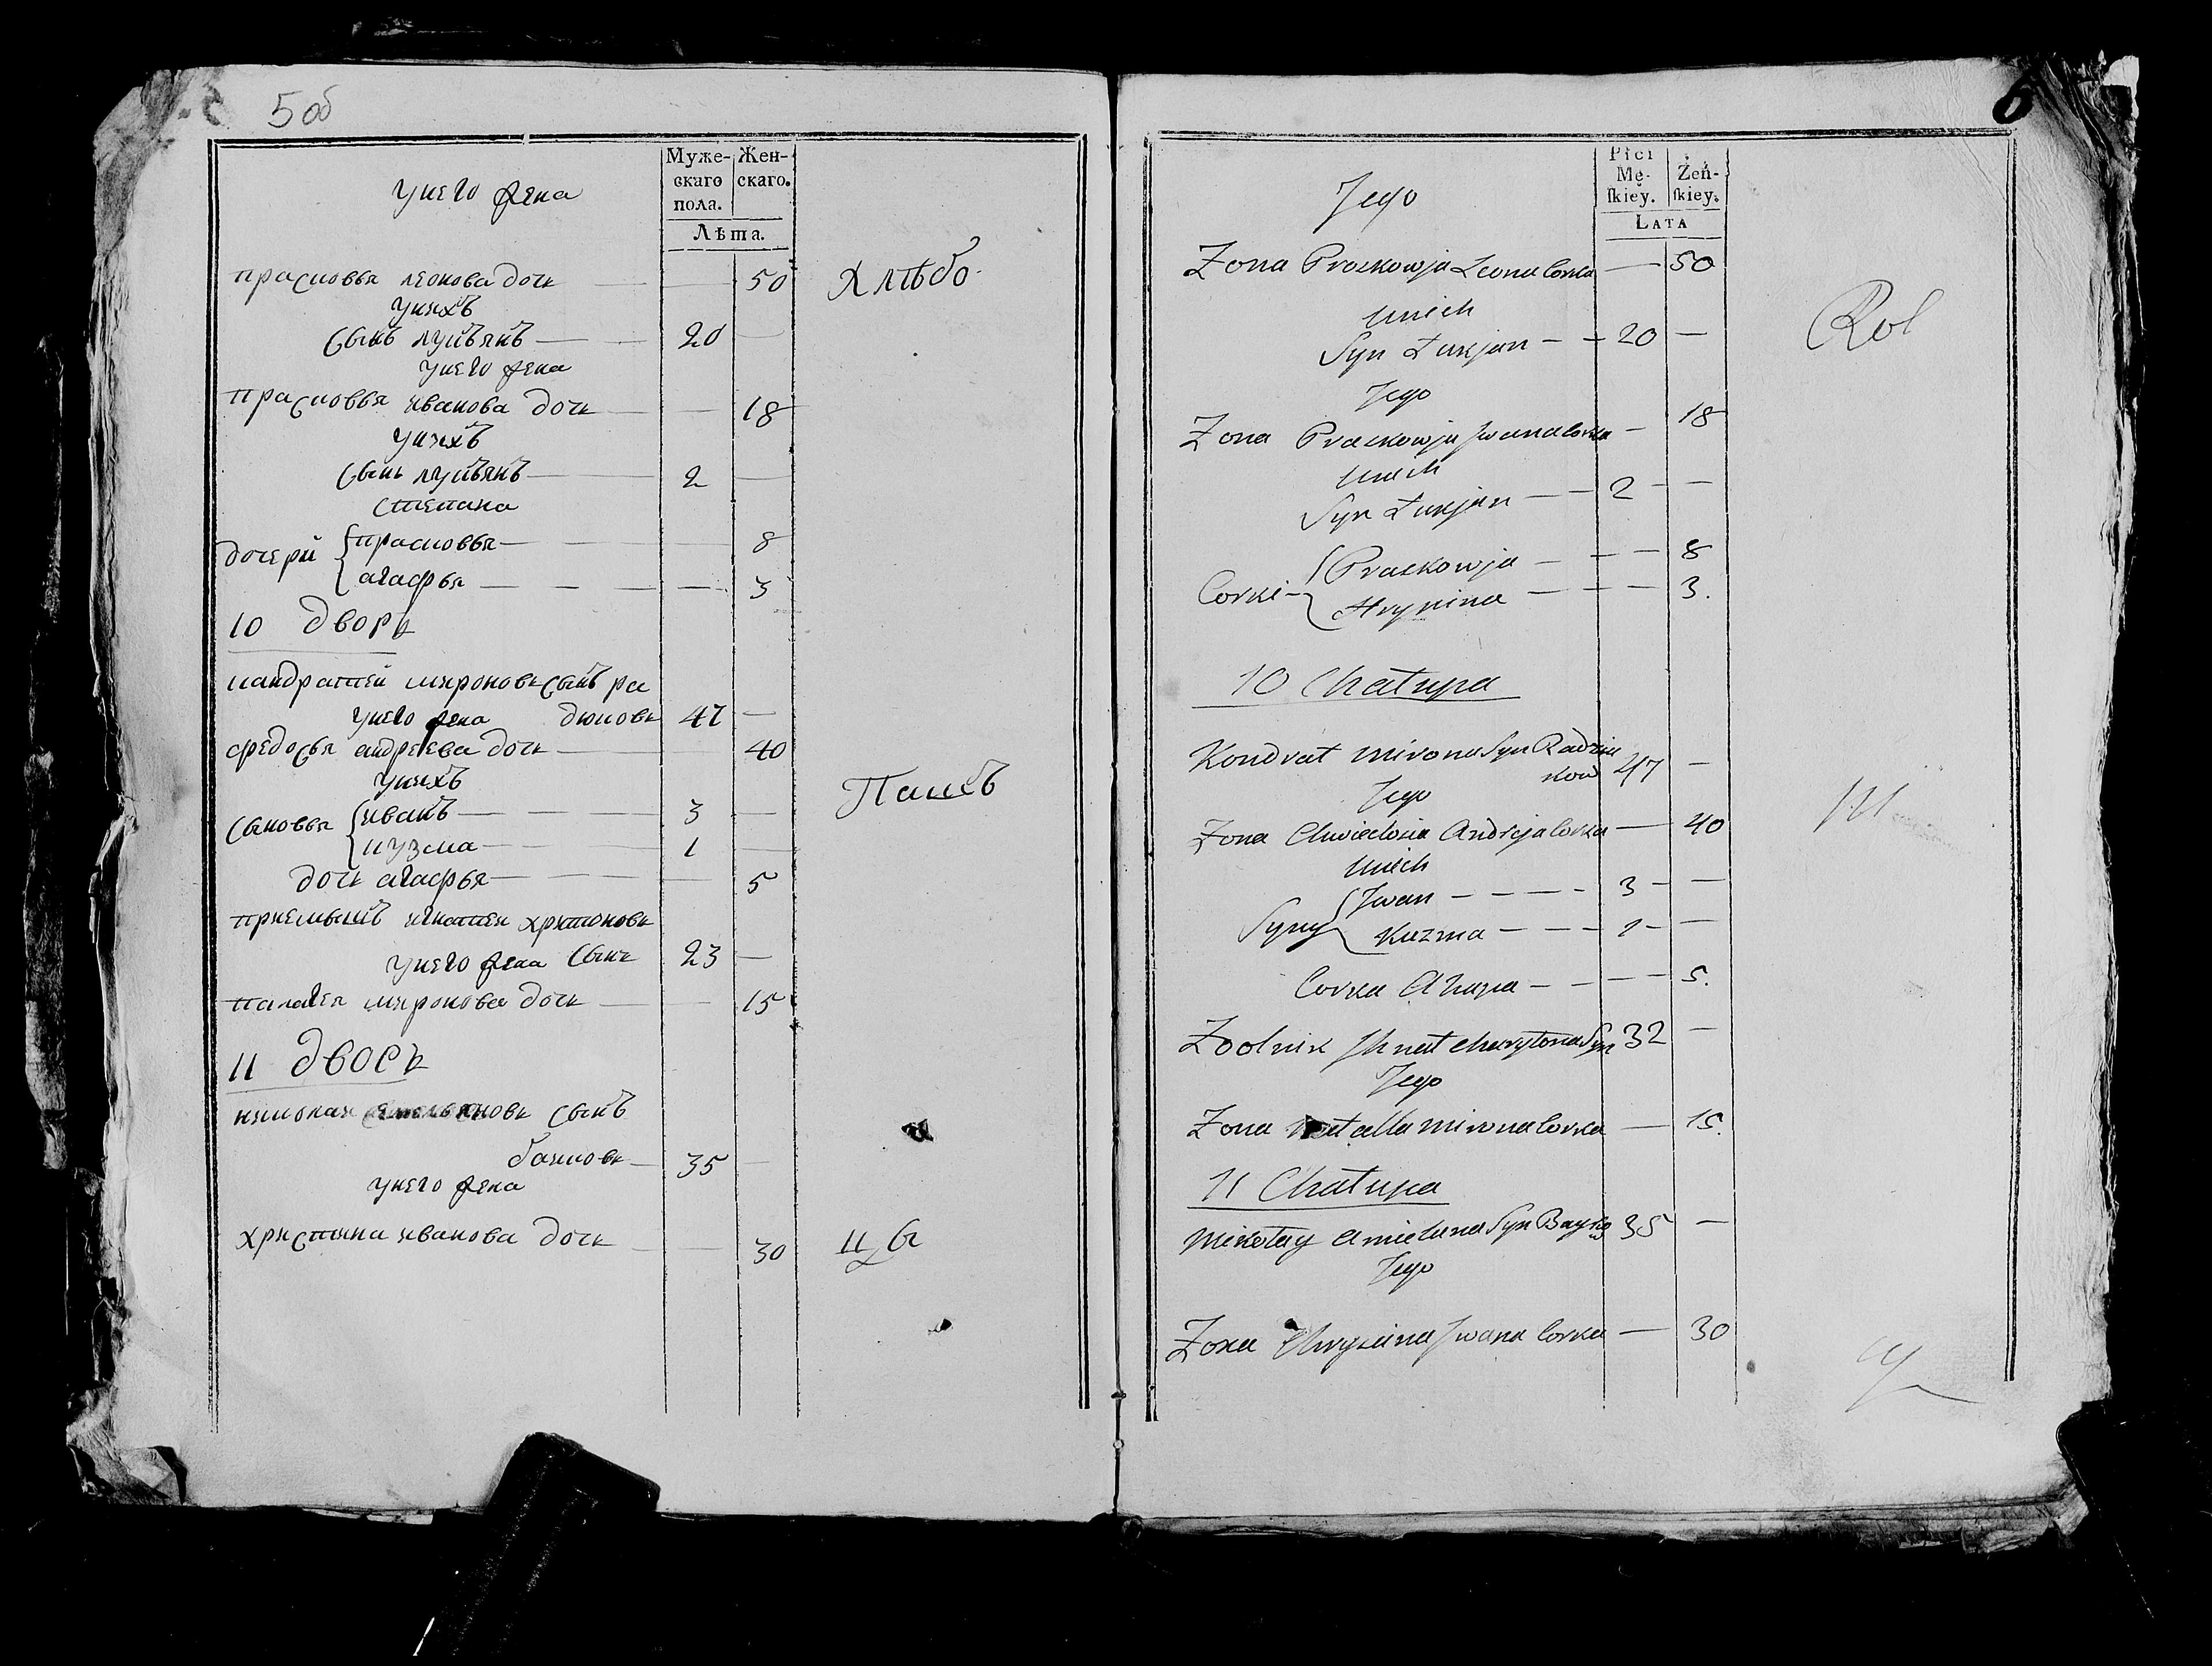 5 об
Муже-
скаго
пола.
Жен-
скаго.
Лѣта.
унего жена
прасковья леонова дочь — — 50
Хлѣбо
унихъ
сынъ лукъянъ — — 20 —
унего жена
прасковья иванова дочь — — 18
унихъ
сынъ лукъянъ — 2 —
степана
дочери { прасковья — — — 8
агафья — — — — 3
10 дворъ
кандратей мироновъ сынъ ра
дюковъ 47 —
унего жена
федосья андреева дочь — — 40
унихъ
Пашъ
сыновья { иванъ — — — 3 —
кузма — — 1 —
дочь агафья — — — — 5
приемышъ игнатей хритоновъ
сынъ 23 —
унего жена
палагея миронова дочь — — 15
11 дворъ
николай емельяновъ сынъ
баиковъ — 35 —
унего жена
христина иванова дочь — — 30
6
Płci
Mę-
ſkiey.
Żeń-
ſkiey.
LATA
Jego
Zona Praskowja Leona Corka — 50
Unich
Rol
Syn Łukjan — — 20 —
Jego
Zona Praskowja Jwana Corka — 18
Unich
Syn Łukjan — — 2 — —
Corki — { Praskowja — — — 8
Hrypina — — — 3.
10 Chałupa
Kondrat Mirona Syn Radziu
kow 47 —
Jego
Zona Chwiedosia Andreja Corka — 40
Unich
Syny { Jwan — — — — 3 — —
Kuzma — — — 1 — —
Corka Ahapa — — — — 5.
Jhnat Charytona Syn 32 —
Jego
Zona Natalla Mirona Corka — 15.
11 Chałupa
Mikołay Amielana Syn 35 —
Jego
Zona Chrysina Jwana Corka — 30